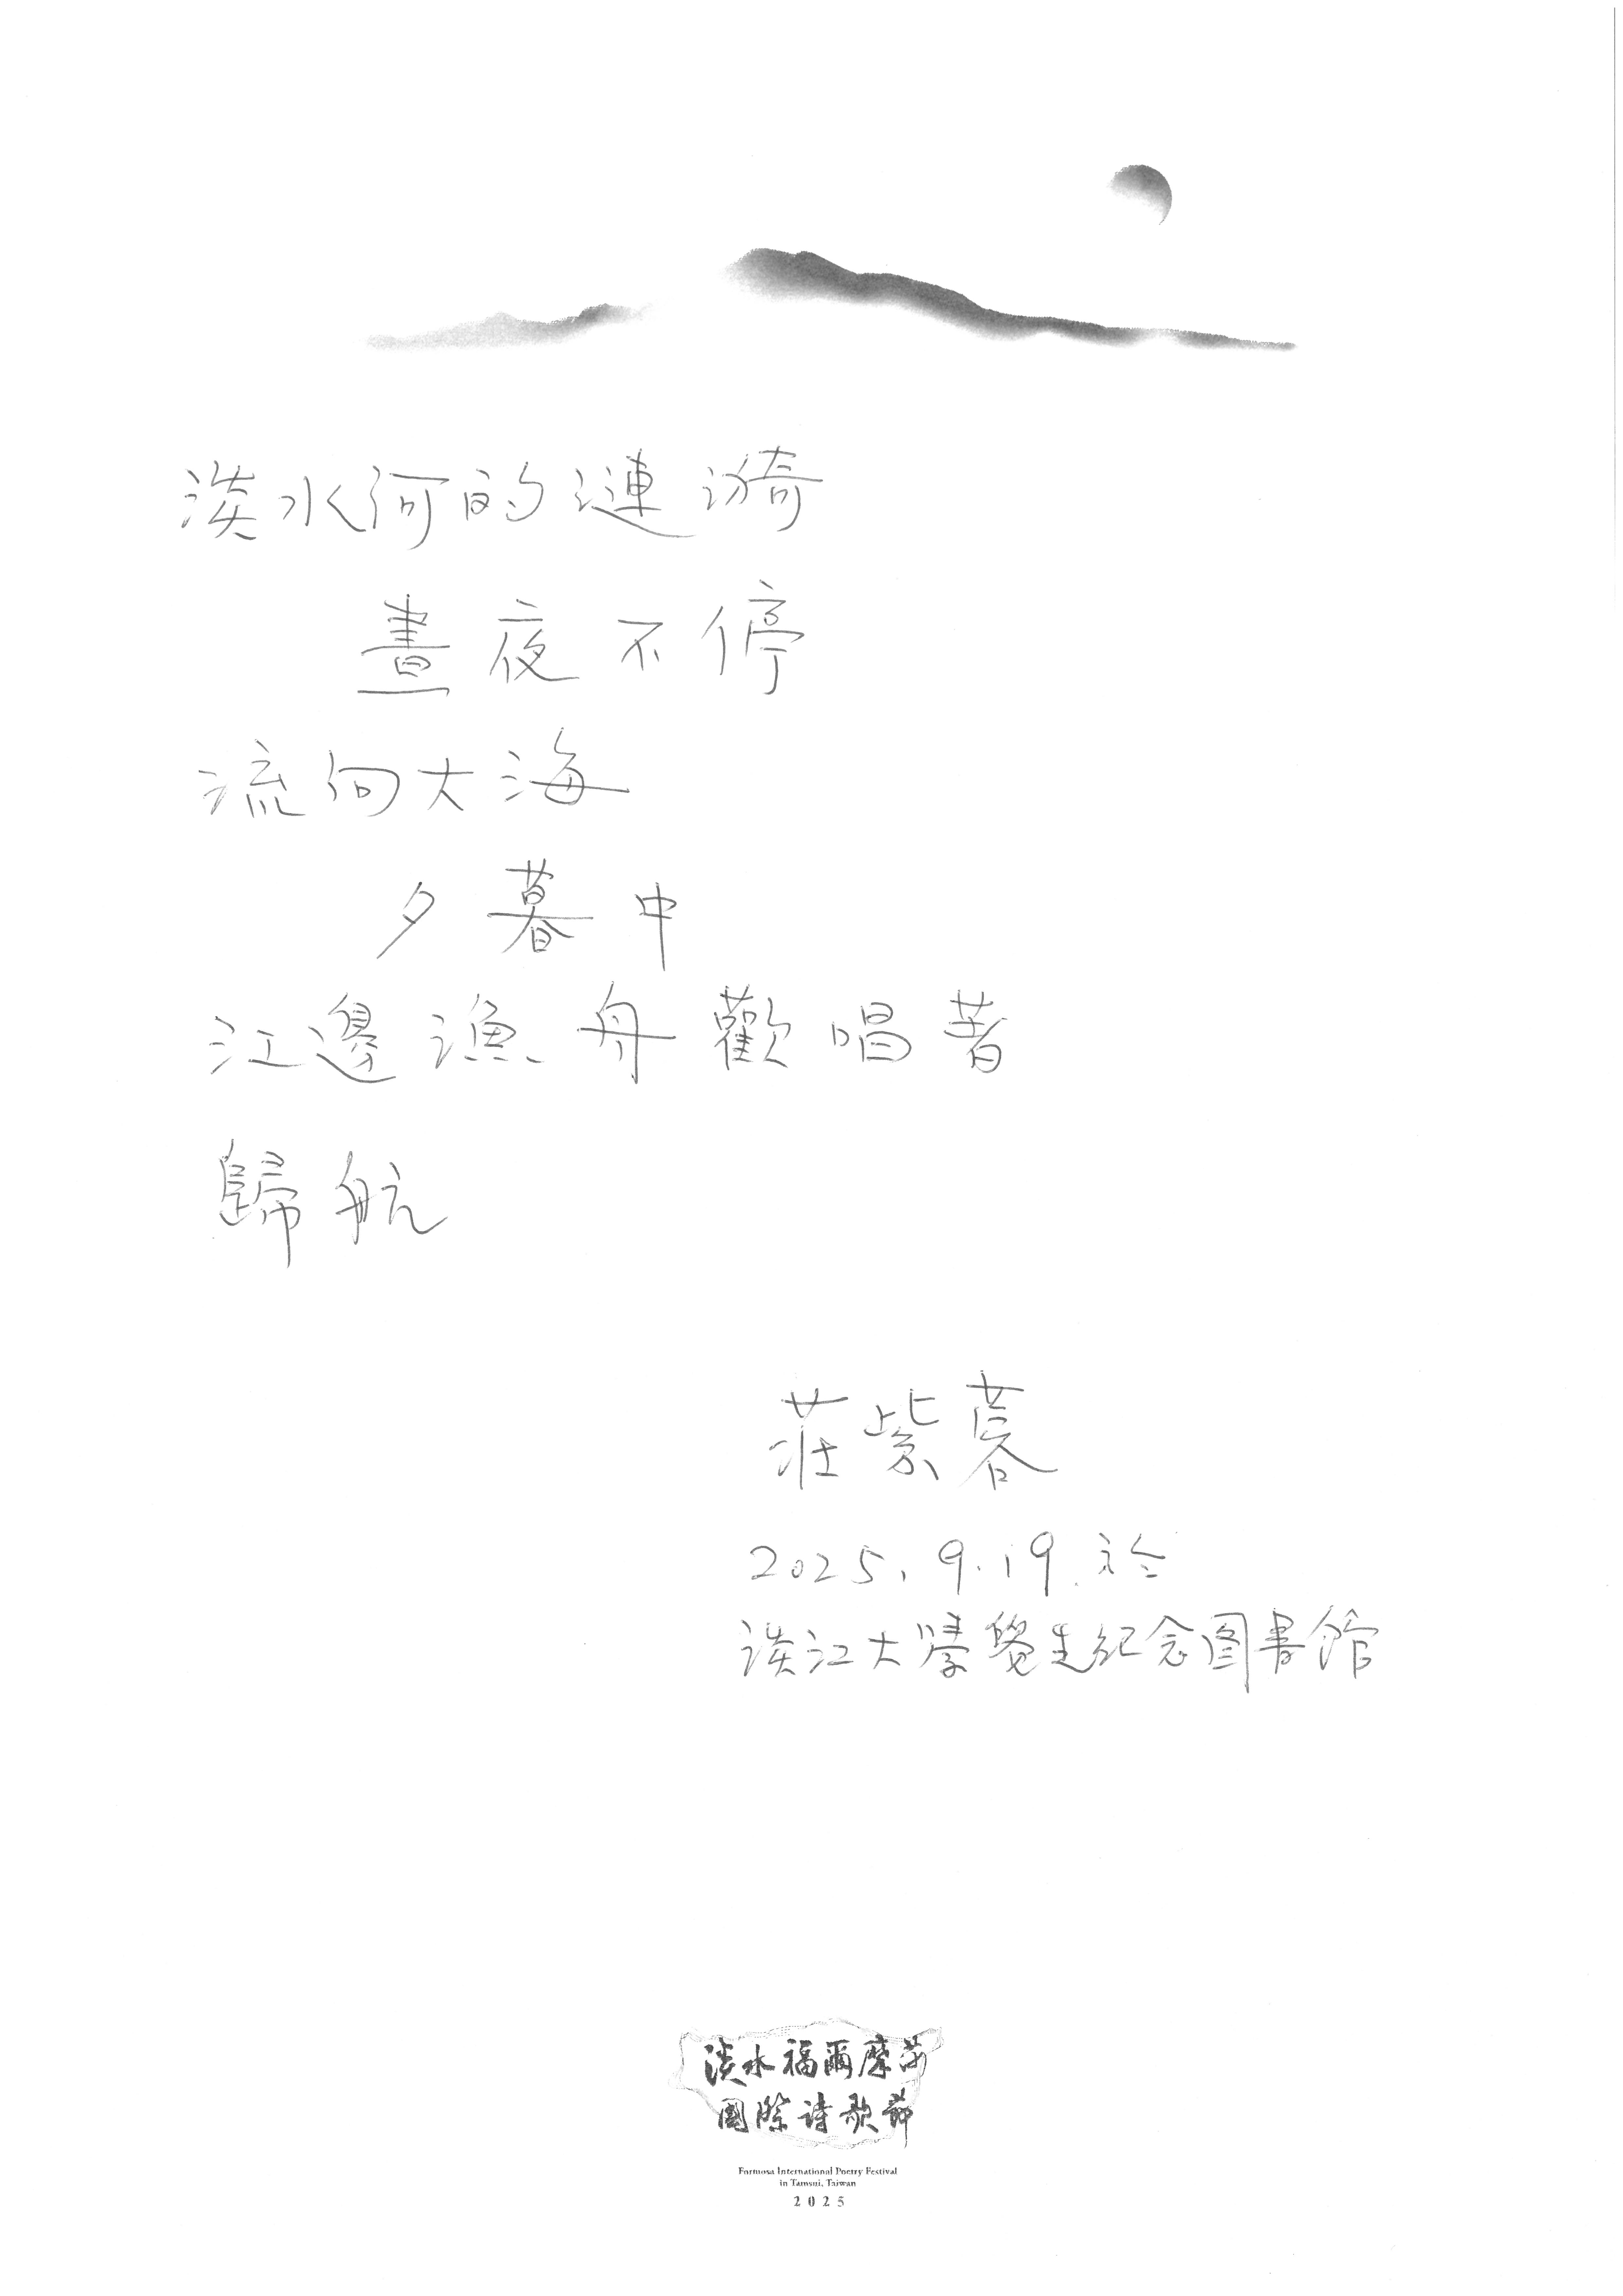 淡水河的漣漪
晝夜不停
流向大海
夕暮中
江邊漁舟歡唱著
歸航
莊紫蓉
2025.9.19.於
淡江大學覺生紀念图書館
淡水福爾摩莎
國際詩歌節
Formosa International Poetry Festival
in Tamsui, Taiwan
2025